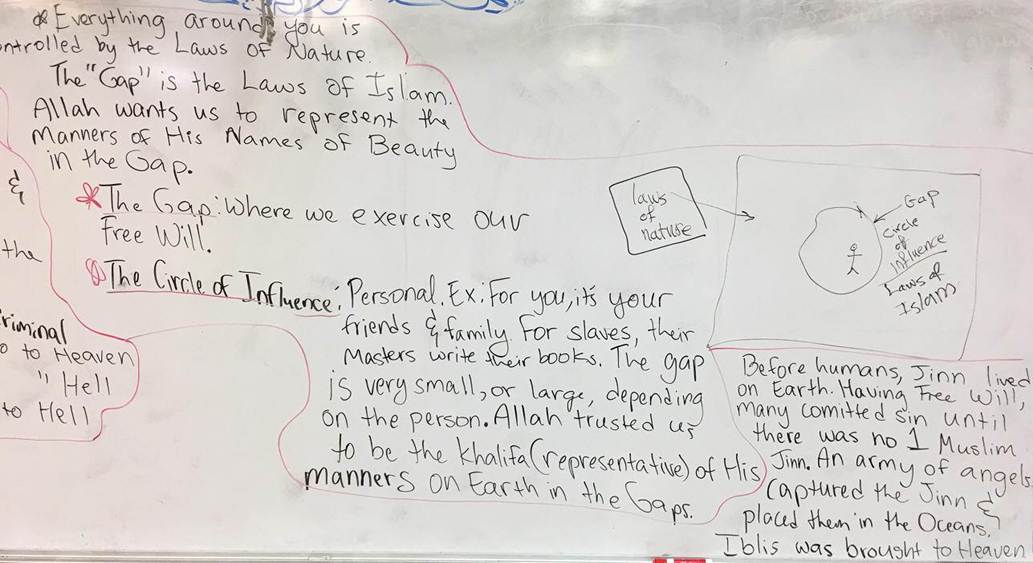 * Everything around you is
ontrolled by the Laws of Nature.
The "Gap" is the Laws of Islam.
Allah wants us to represent the
Manners of His Names of Beauty
in the Gap.
* The Gap: Where we exercise our
Free Will.
The Circle of Influence: Personal. Ex: For you, it's your
friends & family. For slaves, their
Masters write their books. The gap
is very small, or large, depending
on the person. Allah trusted us
to be the Khalifa (representative) of His
manners on Earth in the Gaps.
&
the
riminal
o to Heaven
" Hell
to Hell
laws
of
nature
Gap
Circle
of
Influence
Laws of
Islam
Before humans, Jinn lived
on Earth. Having Free Will,
many comitted sin until
there was no 1 Muslim
Jinn. An army of angels
captured the Jinn &
placed them in the Oceans.
Iblis was brought to Heaven